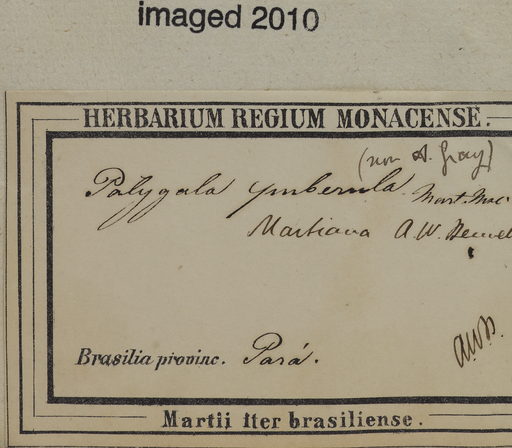 imaged 2010
HERBARIUM REGIUM MONACENSE.
(non A. Gray)
Polygala puberula Mart. Msc.
Martiana A.W. Bennet
Brasilia provinc. Pará.
AWB.
Martii Iter brasiliense.